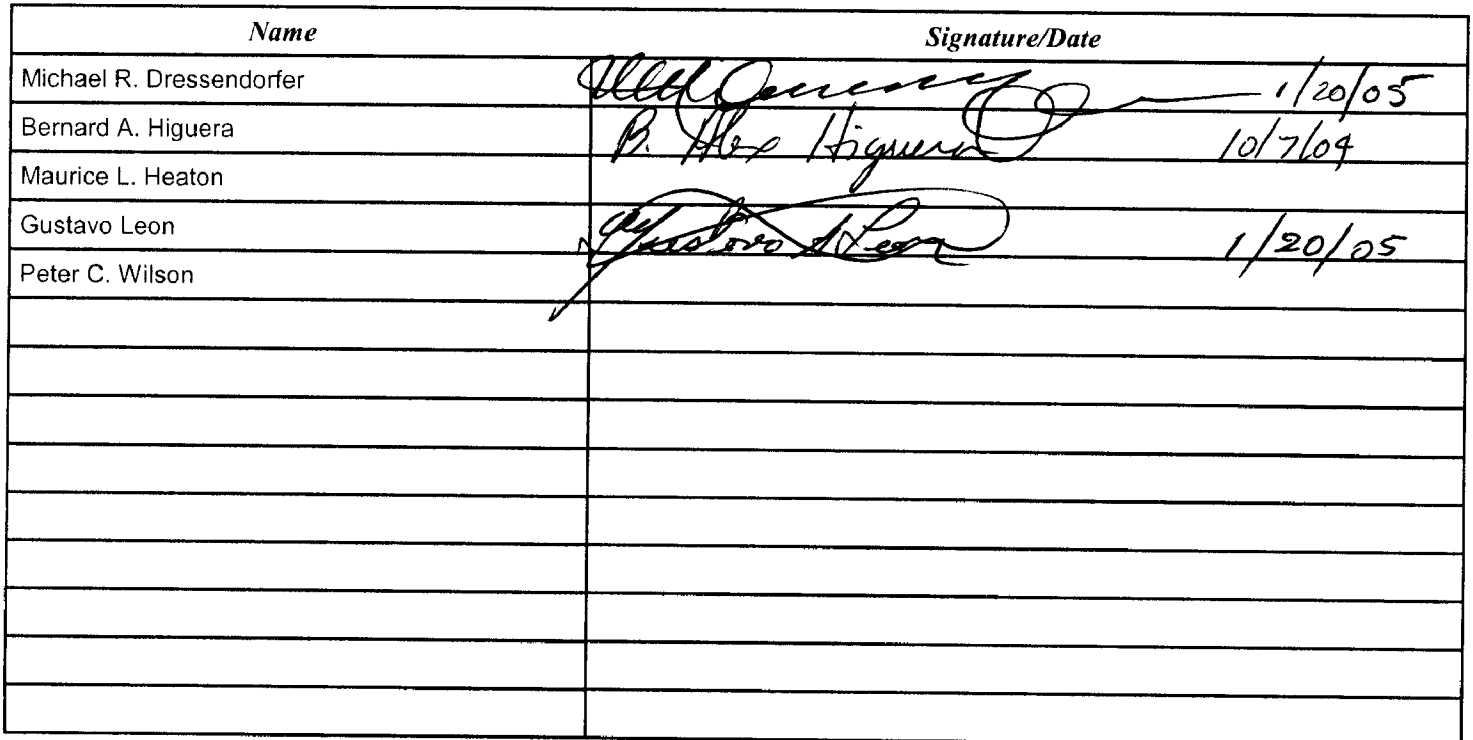 Name Signature/Date
Michael R. Dressendorfer 1/20/05
Bernard A. Higuera B. Alex Higuera 10/7/04
Maurice L. Heaton
Gustavo Leon Gustavo A Leon 1/20/05
Peter C. Wilson